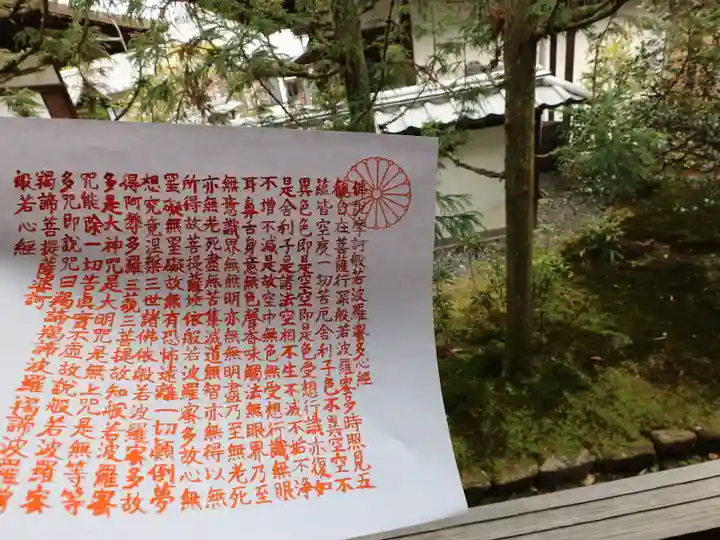 佛説摩訶般若波羅蜜多心經
觀自在菩薩行深般若波羅蜜多時照見五
蘊皆空度一切苦厄舍利子色不異空空不
異色色即是空空即是色受想行識亦復如
是舍利子是諸法空相不生不滅不垢不淨
不增不減是故空中無色無受想行識無眼
耳鼻舌身意無色聲香味觸法無眼界乃至
無意識界無無明亦無無明盡乃至無老死
亦無老死盡無苦集滅道無智亦無得以無
所得故菩提薩埵依般若波羅蜜多故心無
罣礙無罣礙故無有恐怖遠離一切顛倒夢
想究竟涅槃三世諸佛依般若波羅蜜多故
得阿耨多羅三藐三菩提故知般若波羅蜜
多是大神咒是大明咒是無上咒是無等等
咒能除一切苦真實不虚故説般若波羅蜜
多咒即説咒曰羯諦羯諦波羅羯諦波羅
羯諦菩提薩婆訶
般若心經